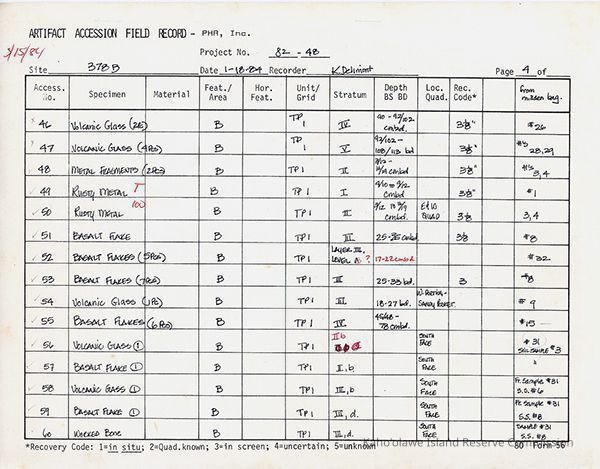 ARTIFACT ACCESSION FIELD RECORD - PHR, Inc.
3/15/84
Project No. 82 - 48
Site 378 B Date 1-18-84 Recorder K. Page 4 of
Access. No. Specimen Material Feat./ Area Hor. Feat. Unit/ Grid Stratum Depth BS BD Loc. Quad. Rec. Code* from midden bag.
46 Volcanic Glass B TP 1 IV cmbd. 3⅛" #26
47 Volcanic Glass (4 PCS) B TP 1 V 108/113 bd 3⅛" #'s 28,29
48 Metal Fragments (2 PCS) B TP 1 II cmbd 3⅛" #'s 3,4
49 Rusty Metal T B TP 1 I cmbd. 3⅛" #1
50 Rusty Metal 100 B TP 1 II cmbd. QUAD 3⅛ 3, 4
51 Basalt Flake B TP 1 III 25-35 cmbd. 3⅛ #8
52 Basalt Flakes (5 PCS) B TP 1 LAYER III, LEVEL A ? 17-22 cmbd #32
53 Basalt Flakes (7 PCS) B TP 1 III 25-33 bd. 3 #8
54 Volcanic Glass (1 PC) B TP 1 III 18-27 bd. W. Portion - Sandy Pocket. # 9
55 Basalt Flakes (6 PCS) B TP 1 IV 45/48 - 78 cmbd. #15
56 Volcanic Glass ① B TP 1 II b South Face #31 Soil Sample #3
57 Basalt Flake ① B TP 1 II, b South Face "
58 Volcanic Glass ① B TP 1 III, b South Face Fr. Sample #31 S.S. #6
59 Basalt Flake ① B TP 1 III, d. South Face Fr. Sample #31 S.S. #8
60 Worked Bone B TP 1 III, d. South Face Sample #31 S.S. #8
*Recovery Code: 1=in situ; 2=Quad.known; 3=in screen; 4=uncertain; 5=unknown 80 Form 56
Kaho'olawe Island Reserve Commission